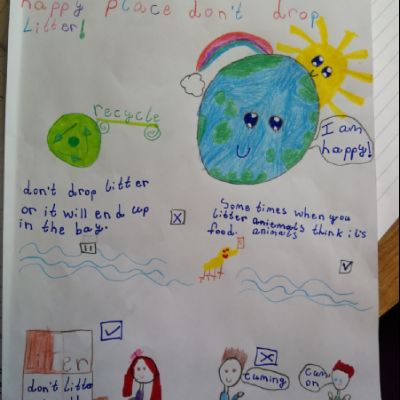 happy place don't drop
Litter!
recycle
I am
happy!
don't drop litter
or it will end up
in the bay.
Some times when you
litter aniemals think it's
food. animals
litter
don't litter
coming
Cum
on